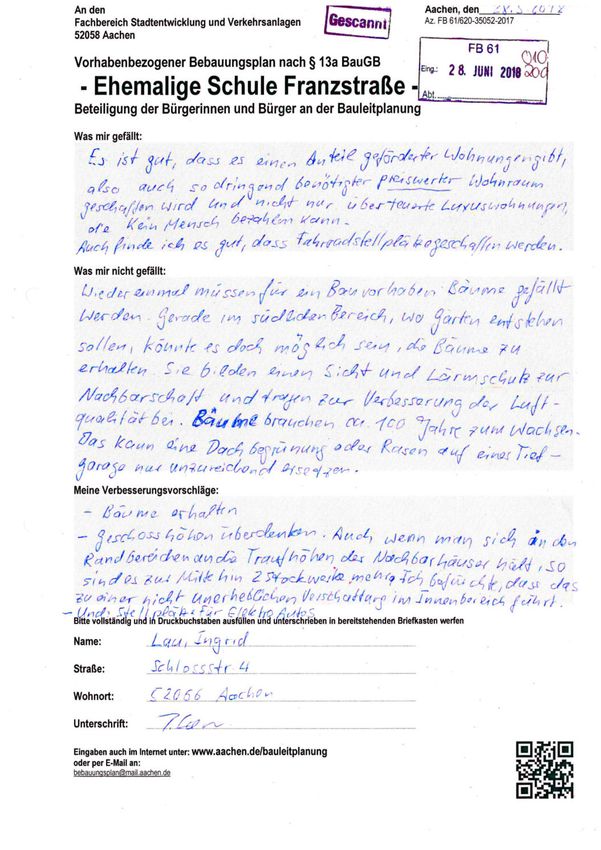 An den
Fachbereich Stadtentwicklung und Verkehrsanlagen
52058 Aachen
Gescannt
Aachen, den
Az. FB 61/620-35052-2017
FB 61
Eing.: 28. JUNI 2018
Abt.
Vorhabenbezogener Bebauungsplan nach § 13a BauGB
- Ehemalige Schule Franzstraße -
Beteiligung der Bürgerinnen und Bürger an der Bauleitplanung
Was mir gefällt:
Es ist gut, dass es einen Anteil geförderter Wohnungen gibt,
also auch so dringend benötigter preiswerter Wohnraum
geschaffen wird und nicht nur überteuerte Luxuswohnungen,
die kein Mensch bezahlen kann.
Auch finde ich es gut, dass Fahrradstellplätze geschaffen werden.
Was mir nicht gefällt:
Wieder einmal müssen für ein Bauvorhaben Bäume gefällt
werden. Gerade im südlichen Bereich, wo Gärten entstehen
sollen, könnte es doch möglich sein, die Bäume zu
erhalten. Sie bilden einen Sicht und Lärmschutz zur
Nachbarschaft und tragen zur Verbesserung der Luft-
qualität bei. Bäume brauchen ca. 100 Jahre zum Wachsen.
Das kann eine Dachbegrünung oder Rasen auf einer Tief-
garage nur unzureichend ersetzen.
Meine Verbesserungsvorschläge:
- Bäume erhalten
- Geschosshöhen überdenken. Auch wenn man sich an den
Randbereichen an die Traufhöhen der Nachbarhäuser hält, so
sind es zur Mitte hin 2 Stockwerke mehr. Ich befürchte, dass das
zu einer nicht unerheblichen Verschattung im Innenbereich führt.
- Und: Stellplätze für Elektro Autos
Bitte vollständig und in Druckbuchstaben ausfüllen und unterschrieben in bereitstehenden Briefkasten werfen
Name: Lau, Ingrid
Straße: Schlossstr. 4
Wohnort: 52066 Aachen
Unterschrift: I. Lau
Eingaben auch im Internet unter: www.aachen.de/bauleitplanung
oder per E-Mail an:
bebauungsplan@mail.aachen.de